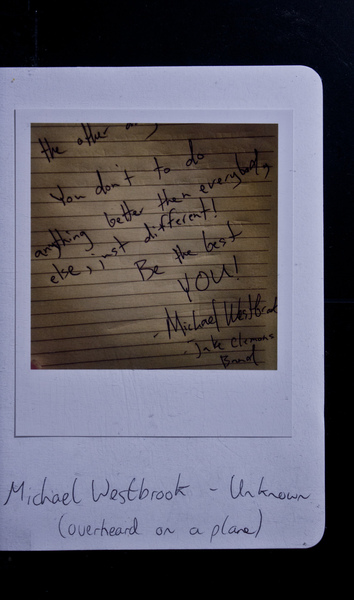 the other
You don't to do
anything better then everybody
else, just different!
Be the best
YOU!
- Michael Westbrook
- Jake Clemons
Band
Michael Westbrook - Unknown
(overheard on a plane)